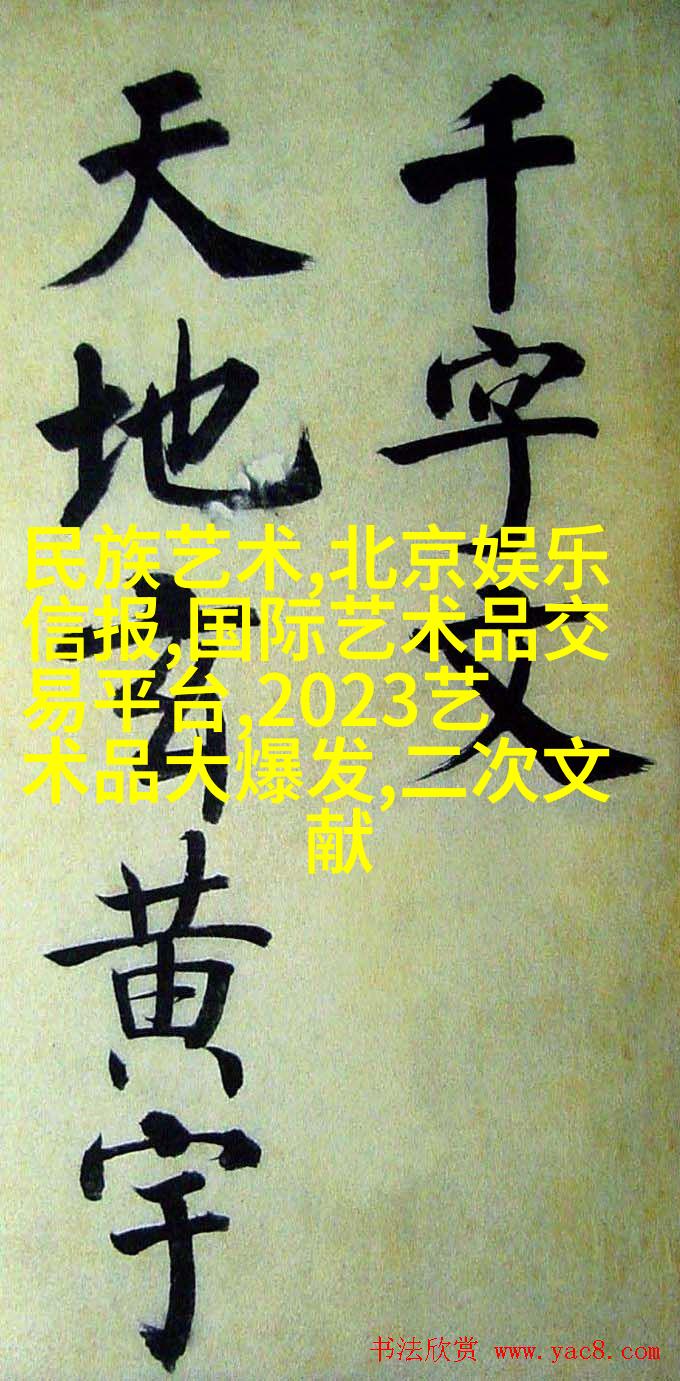 千字文
天地玄黄宇
民族艺术,北京娱乐
信报,国际艺术品交
易平台,2023艺
术品大爆发,二次文
献
书法欣赏 www.yac8.com